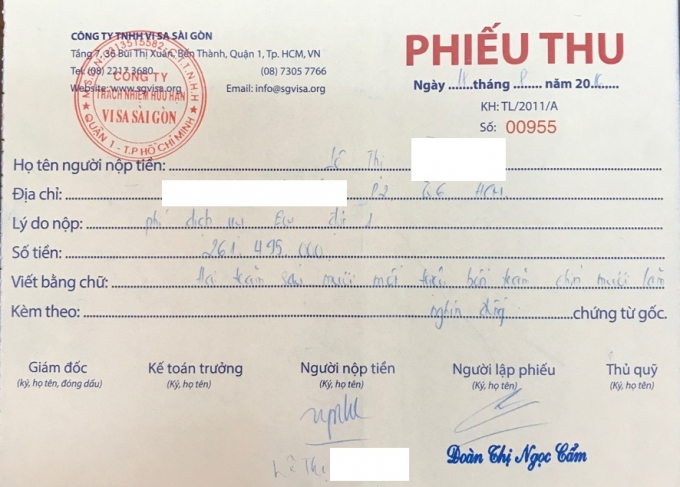 CÔNG TY TNHH VI SA SÀI GÒN
Tầng 7, 36 Bùi Thị Xuân, Bến Thành, Quận 1, Tp. HCM, VN
Tel: (08) 2217 3680 (08) 7305 7766
Website: www.sgvisa.org Email: info@sgvisa.org
M.S.D.N: 0313515582 - C.T.T.N.H.H
CÔNG TY
TRÁCH NHIỆM HỮU HẠN
VI SA SÀI GÒN
QUẬN 1 - T.P HỒ CHÍ MINH
PHIẾU THU
Ngày ......tháng ...8... năm 20......
KH: TL/2011/A
Số: 00955
Họ tên người nộp tiền: Lê Thị
Địa chỉ: P2 Q6 HCM
Lý do nộp: phí dịch vụ đợt 1
Số tiền: 261.495.000
Viết bằng chữ: Hai trăm sáu mươi mốt triệu bốn trăm chín mươi lăm
nghìn đồng
Kèm theo: chứng từ gốc.
Giám đốc Kế toán trưởng Người nộp tiền Người lập phiếu Thủ quỹ
(ký, họ tên, đóng dấu) (Ký, họ tên) (Ký, họ tên) (Ký, họ tên) (Ký, họ tên)
Lê Thị
Đoàn Thị Ngọc Cẩm